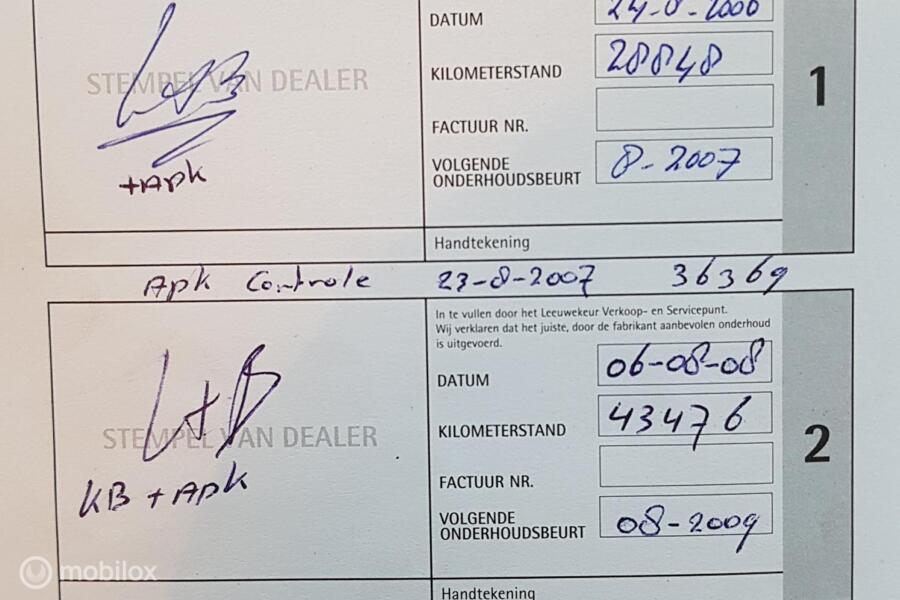 DATUM 24-8-2006
STEMPEL VAN DEALER
L+B
KILOMETERSTAND 28848
1
FACTUUR NR.
+APK
VOLGENDE
ONDERHOUDSBEURT 8-2007
Handtekening
APK Controle 23-8-2007 36369
In te vullen door het Leeuwekeur Verkoop- en Servicepunt.
Wij verklaren dat het juiste, door de fabrikant aanbevolen onderhoud
is uitgevoerd.
DATUM 06-08-08
STEMPEL VAN DEALER
L+B
KILOMETERSTAND 43476
2
KB + APK
FACTUUR NR.
VOLGENDE
ONDERHOUDSBEURT 08-2009
Handtekening
mobilox